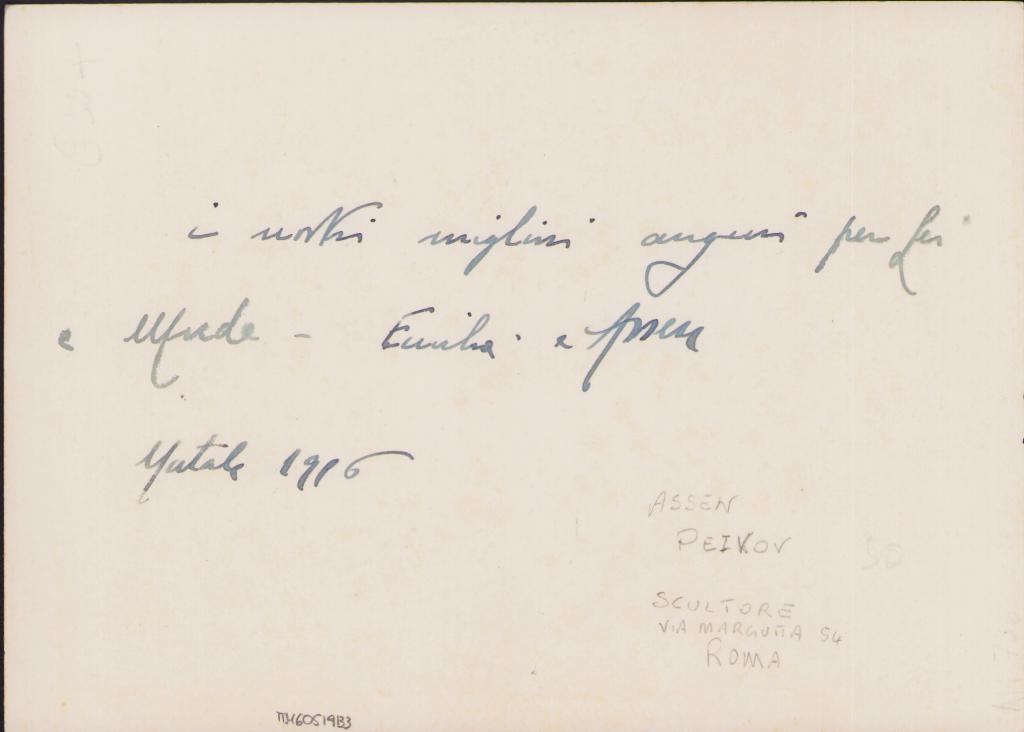 i nostri migliori auguri per Lei
e
Emilia e Assen
Natale 1956
ASSEN
PEIKOV
50
SCULTORE
VIA MARGUTTA 54
ROMA